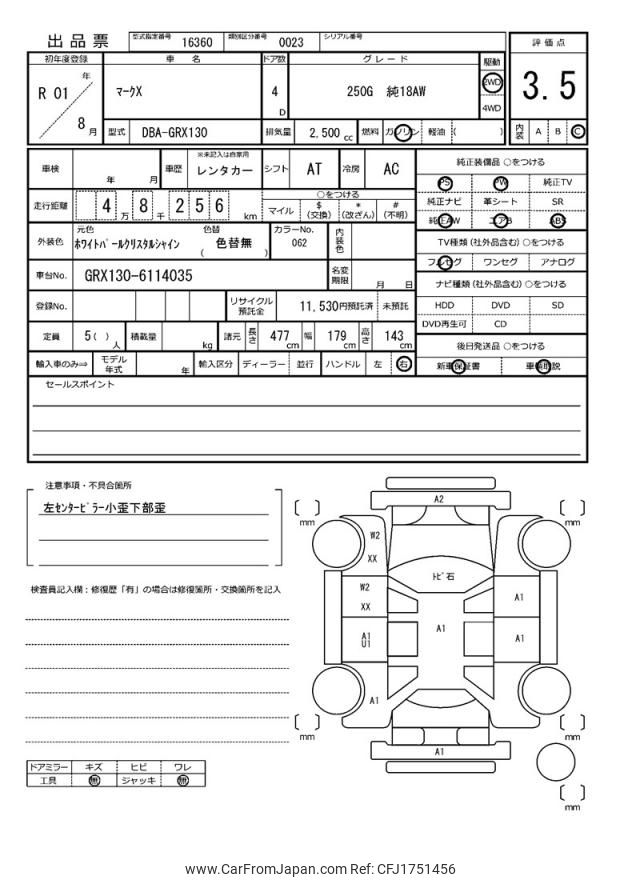 出品票 型式指定番号 16360 類別区分番号 0023 シリアル番号
初年度登録 車名 ドア数 グレード 駆動 評価点
R 01 年 8 月 マークX 4 D 250G 純18AW 2WD 4WD 3.5
型式 DBA-GRX130 排気量 2,500 cc 燃料 ガソリン 軽油 ( ) 内装 A B C
車検 年 月 車歴 ※未記入は自家用 レンタカー シフト AT 冷房 AC 純正装備品 ○をつける
PS PW 純正TV
走行距離 4 万 8 千 2 5 6 km ○をつける マイル $ (交換) * (改ざん) # (不明) 純正ナビ 革シート SR
純正AW エアB ABS
外装色 元色 ホワイトパールクリスタルシャイン 色替 ( 色替無 ) カラーNo. 062 内装色 TV種類 (社外品含む) ○をつける
フルセグ ワンセグ アナログ
車台No. GRX130-6114035 名変期限 月 日 ナビ種類 (社外品含む) ○をつける
登録No. リサイクル預託金 11,530円預託済 未預託 HDD DVD SD
DVD再生可 CD
定員 5 ( ) 人 積載量 kg 諸元 長さ 477 cm 幅 179 cm 高さ 143 cm 後日発送品 ○をつける
輸入車のみ⇒ モデル年式 年 輸入区分 ディーラー 並行 ハンドル 左 右 新車保証書 車輌取説
セールスポイント
注意事項・不具合箇所
左センターピラー小歪下部歪
検査員記入欄：修復歴「有」の場合は修復箇所・交換箇所を記入
A2
mm mm
W2
XX
トビ石
W2
XX
A1
A1
A1
U1
A1
A1
A1
mm mm
A1
mm
ドアミラー キズ ヒビ ワレ
工具 無 ジャッキ 無
www.CarFromJapan.com Ref: CFJ1751456